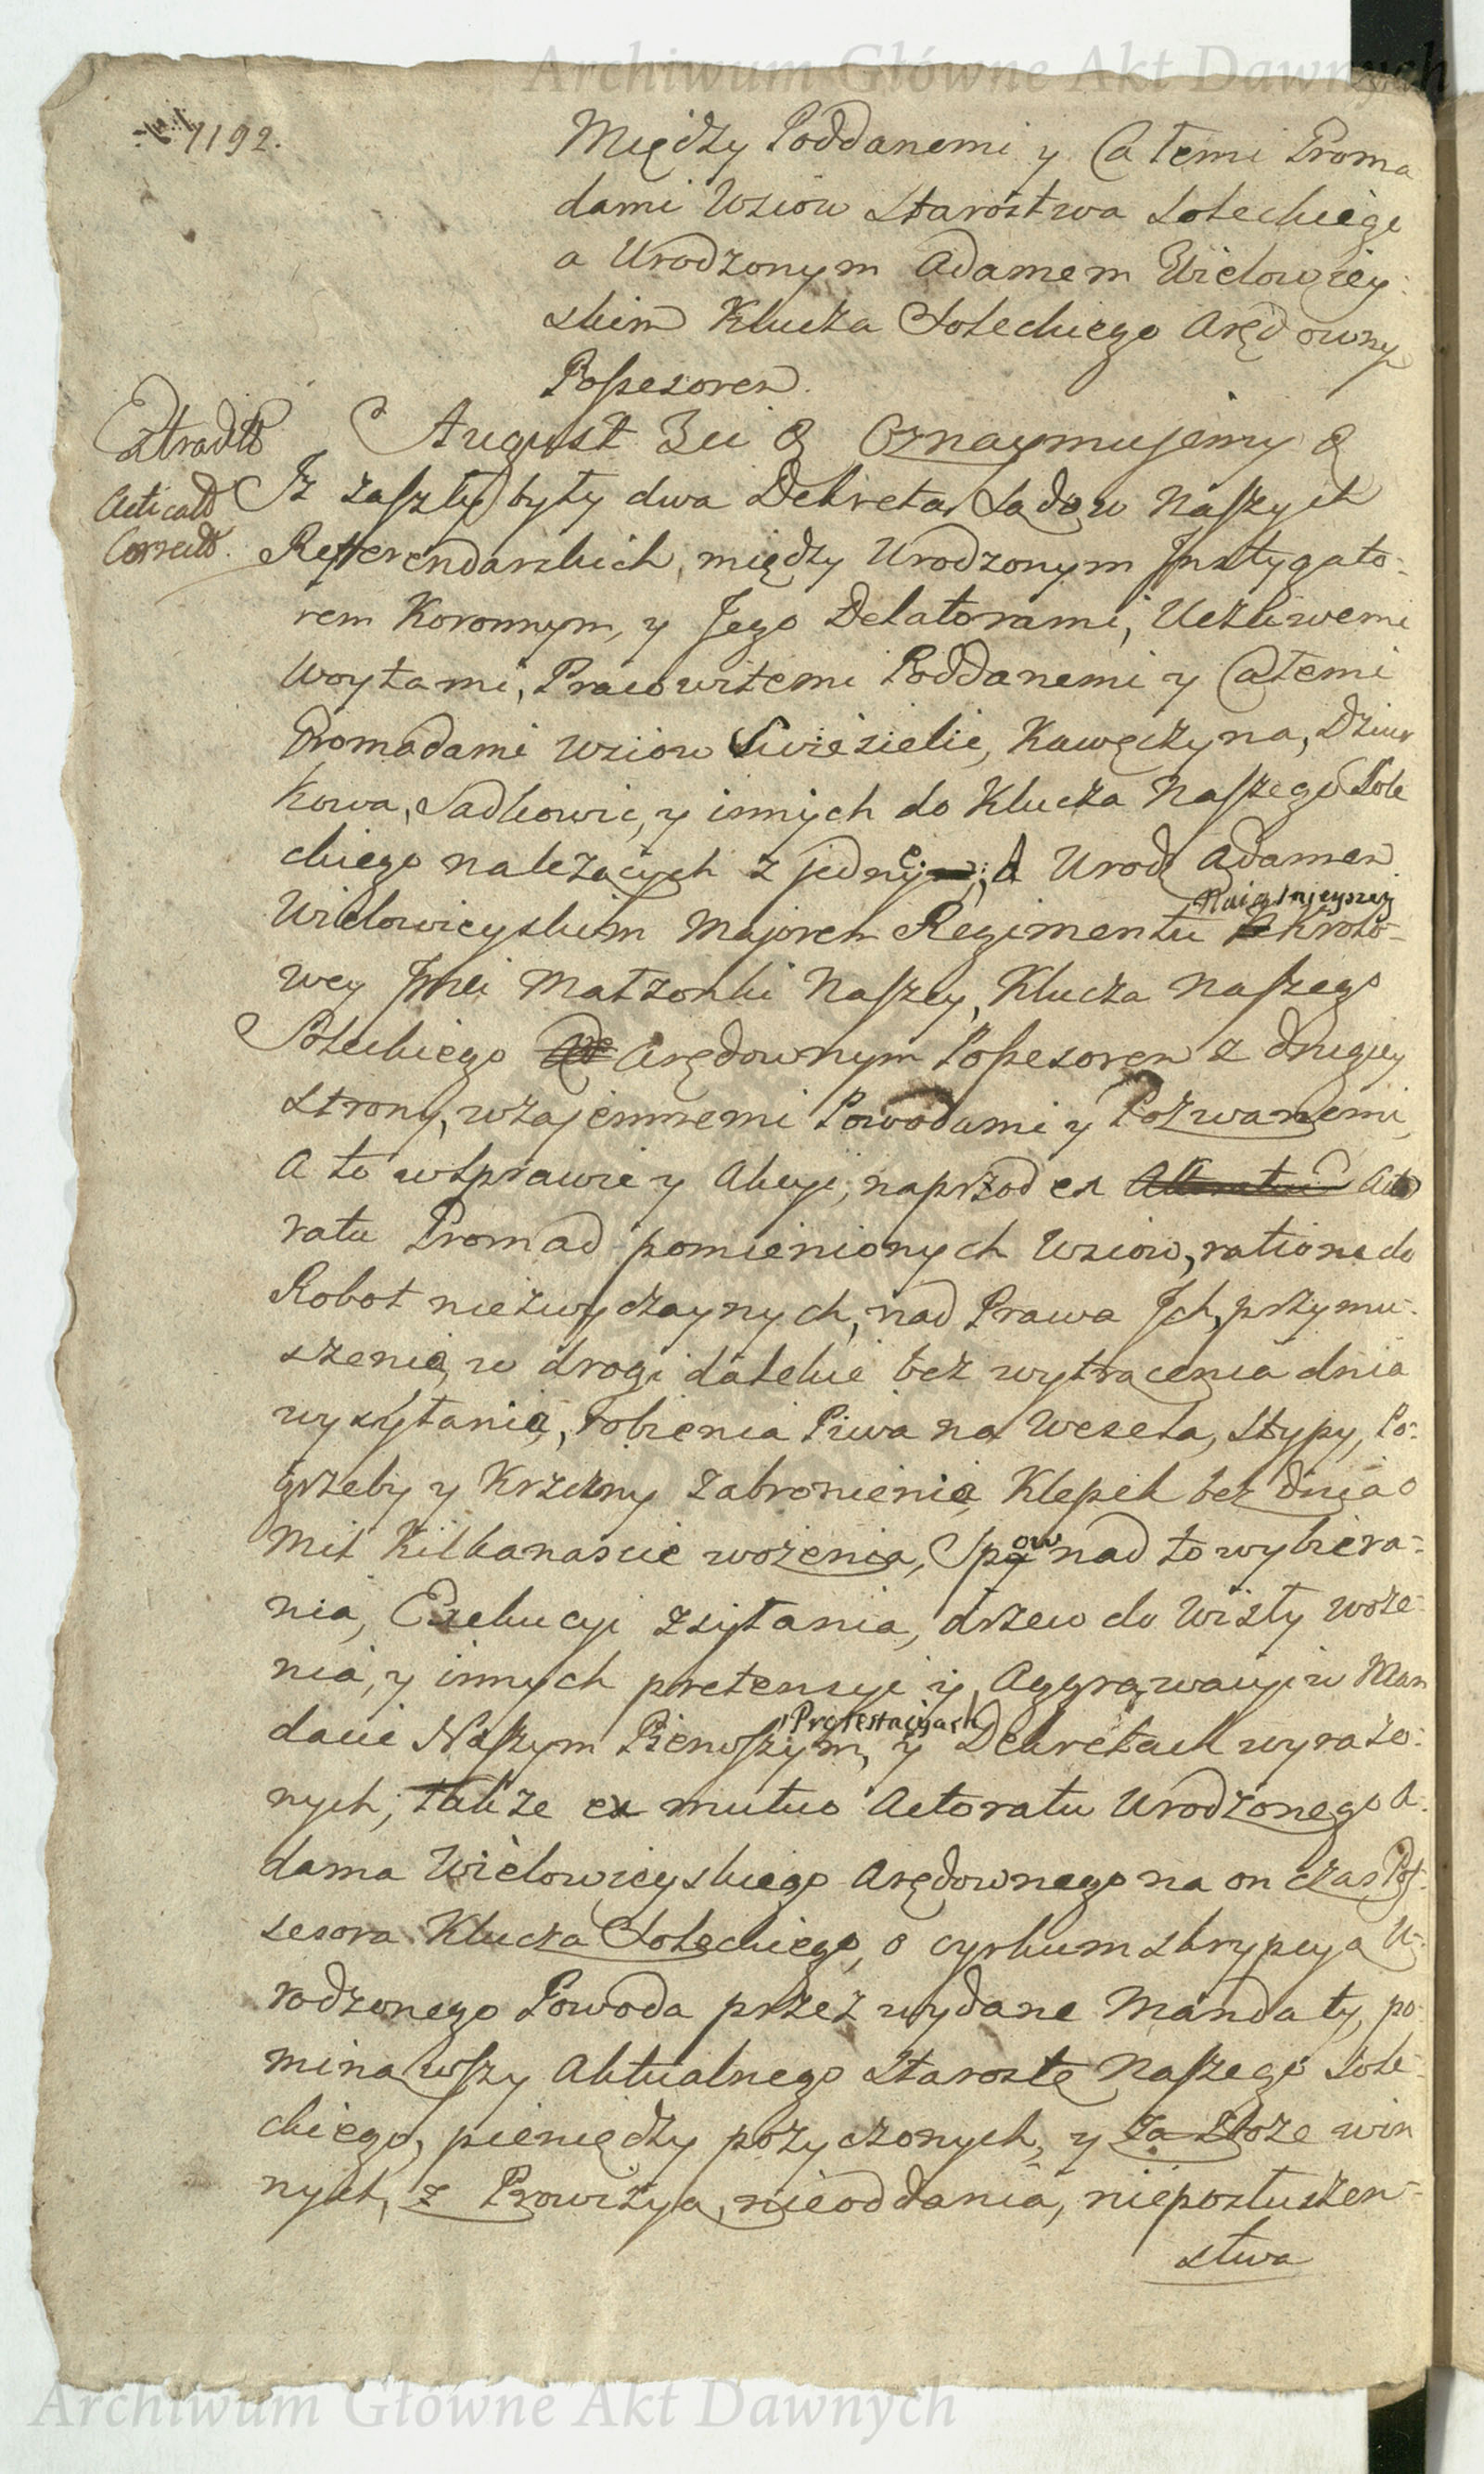 Archiwum Główne Akt Dawnych
1192.
Między Poddanemi y Całemi Groma
dami Wsiow Starostwa Soleckiego
a Urodzonym Adamem Wielowiey:
skim Klucza Soleckiego Aręd ownym
Possesorem.
Extradt
Acticatt
Correctt.
August 3ci & Oznaymujemy &
Iż zaszłe były dwa Dekreta Sądow Naszych
Refferendarskich, między Urodzonym Instygato-
rem Koronnym, y Jego Delatorami, Uczliwemi
Woytami, Pracowitemi Poddanemi y Całemi
Gromadami Wsiow Swiesielic, Kawęczyna, Dziur
kowa, Sadkowic, y innych do Klucza Naszego Sole
ckiego należących z jedney; A Urodz Adamem
Nayiasnieyszey
Wielowieyskim Majorem Regimentu Krolo-
wey Jmci Małżonki Naszey, Klucza Naszego
Soleckiego Arędownym Possesorem z drugiey
strony, wzajemnemi Powodami y Pozwanemi,
A to w Sprawie y Akcyi, naprzod ex Acto
ratu Gromad pomienionych Wsiow, ratione do
Robot niezwyczaynych, nad Prawa Ich, przymu-
szenia, w drogi dalekie bez wytrącenia dnia
wysyłania, robienia Piwa na Wesela, Stypy, Po-
grzeby y Krzciny zabronienia, Klepek bez dnia o
Mil Kilkanascie wożenia, Spow nad to wybiera-
nia, Exekucyi zsyłania, drzew do Wisły woże-
nia, y innych pretensyi y Aggrawacyi w Man
Protestacyach
dacie Naszym Pierwszym, y Dekretach wyrażo-
nych; także ex mutuo Actoratu Urodzonego A-
dama Wielowieyskiego Arędownego na on czas Pos-
sesora Klucza Soleckiego, o cyrkumskrypcyą U-
rodzonego Powoda przez wydane Mandaty, po-
minawszy Aktualnego Starostę Naszego Sole-
ckiego, pieniędzy pożyczonych, y za zboże win
nych, z Prowizyą, nieoddania, nieposłuszen-
stwa
Archiwum Główne Akt Dawnych